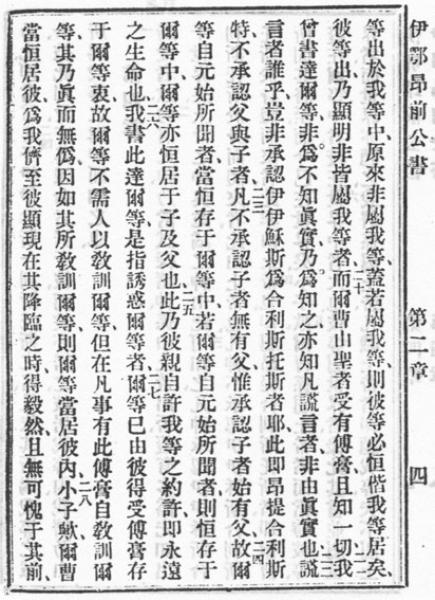 伊鄂昂前公書 第二章 四
等出於我等中、原來非屬我等、蓋若屬我等、則彼等必恒偕我等居矣、
彼等出、乃顯明非皆屬我等者、二十而爾曹由聖者受有傅膏、且知一切、二一我
曾書達爾等、非爲不知眞實、乃爲知之、亦知凡謊言者、非由眞實也、二二謊
言者誰乎、豈非不承認伊伊穌斯爲合利斯托斯者耶、此即昂提合利斯
特、不承認父與子者、二三凡不承認子者無有父、惟承認子者始有父、二四故爾
等自元始所聞者、當恒存于爾等中、若爾等自元始所聞者、則恒存于
爾等中、爾等亦恒居于子及父也、二五此乃彼親自許我等之約許、即永遠
之生命也、二六我書此達爾等、是指誘惑爾等者、二七爾等已由彼得受傅膏存
于爾等衷、故爾等不需人以敎訓爾等、但在凡事有此傅膏自敎訓爾
等、其乃眞而無僞、因如其所敎訓爾等、則爾等當居彼內、二八小子歟、爾曹
當恒居彼、爲我儕至彼顯現、在其降臨之時、得毅然、且無可愧于其前、